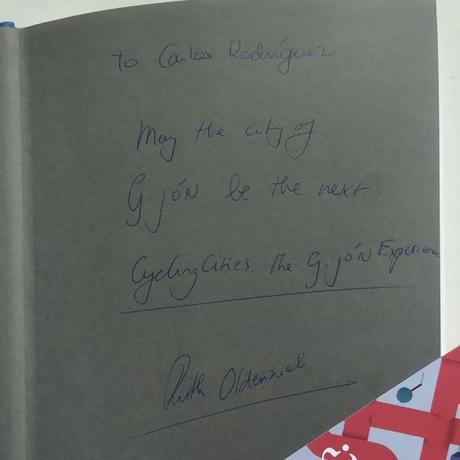 To Carlos Rodríguez
May the city of
Gijón be the next.
Cycling Cities: The Gijón Experience
Ruth Oldenziel